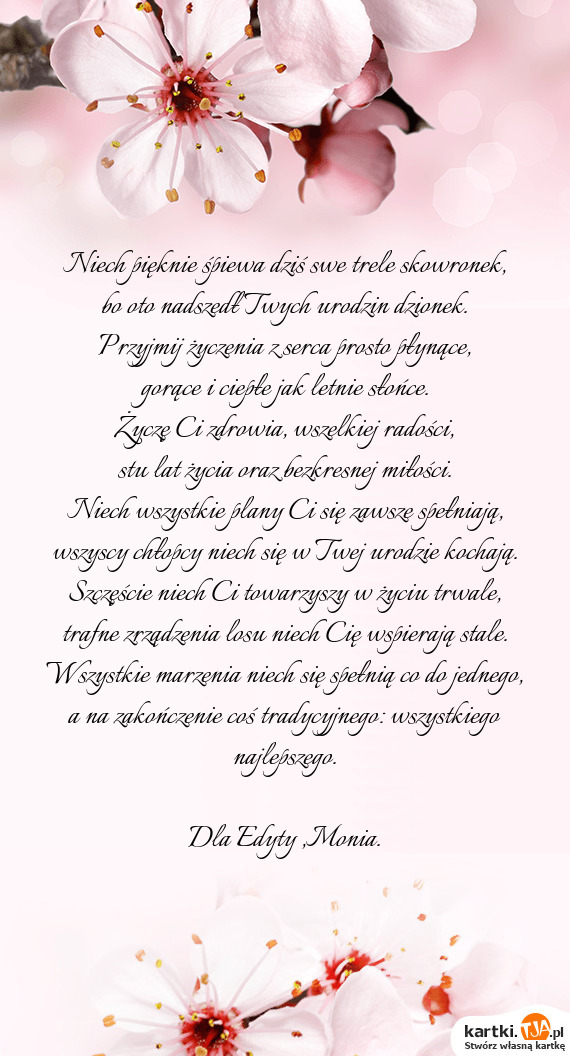 Niech pięknie śpiewa dziś swe trele skowronek,
bo oto nadszedł Twych urodzin dzionek.
Przyjmij życzenia z serca prosto płynące,
gorące i ciepłe jak letnie słońce.
Życzę Ci zdrowia, wszelkiej radości,
stu lat życia oraz bezkresnej miłości.
Niech wszystkie plany Ci się zawsze spełniają,
wszyscy chłopcy niech się w Twej urodzie kochają.
Szczęście niech Ci towarzyszy w życiu trwale,
trafne zrządzenia losu niech Cię wspierają stale.
Wszystkie marzenia niech się spełnią co do jednego,
a na zakończenie coś tradycyjnego: wszystkiego
najlepszego.
Dla Edyty ,Monia.
kartki.TJA.pl
Stwórz własną kartkę